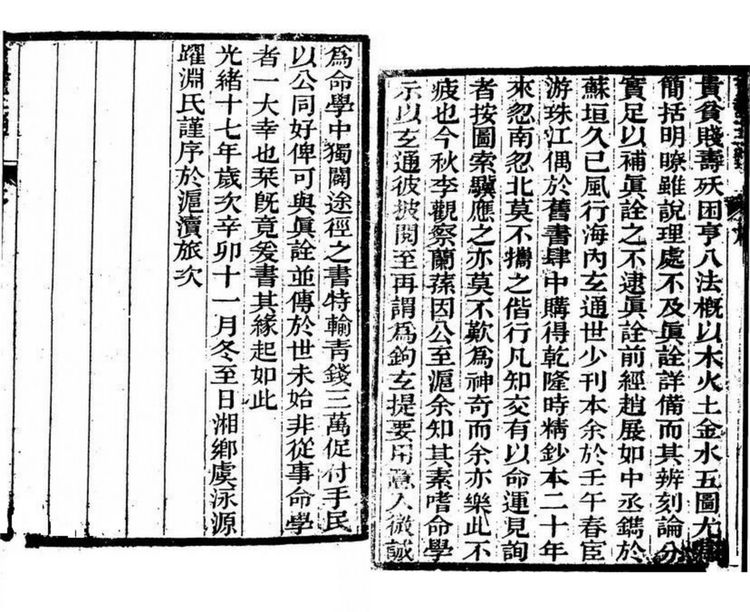 貴貧賤壽殀困亨八法概以木火土金水五圖尤
簡括明瞭雖說理處不及眞詮詳備而其辨刻論分
實足以補眞詮之不逮眞詮前經趙展如中丞鐫於
蘇垣久已風行海內玄通世少刊本余於壬午春宦
游珠江偶於舊書肆中購得乾隆時精鈔本二十年
來忽南忽北莫不攜之偕行凡知交有以命運見詢
者按圖索驥應之亦莫不歎爲神奇而余亦樂此不
疲也今秋李觀察蘭蓀因公至滬余知其素嗜命學
示以玄通彼披閱至再謂爲鉤玄提要用意入微誠
爲命學中獨闢途徑之書特輸青錢三萬促付手民
以公同好俾可與眞詮並傳於世未始非從事命學
者一大幸也棻旣竟爰書其緣起如此
光緒十七年歲次辛卯十一月冬至日湘鄉虞泳源
躍淵氏謹序於滬瀆旅次